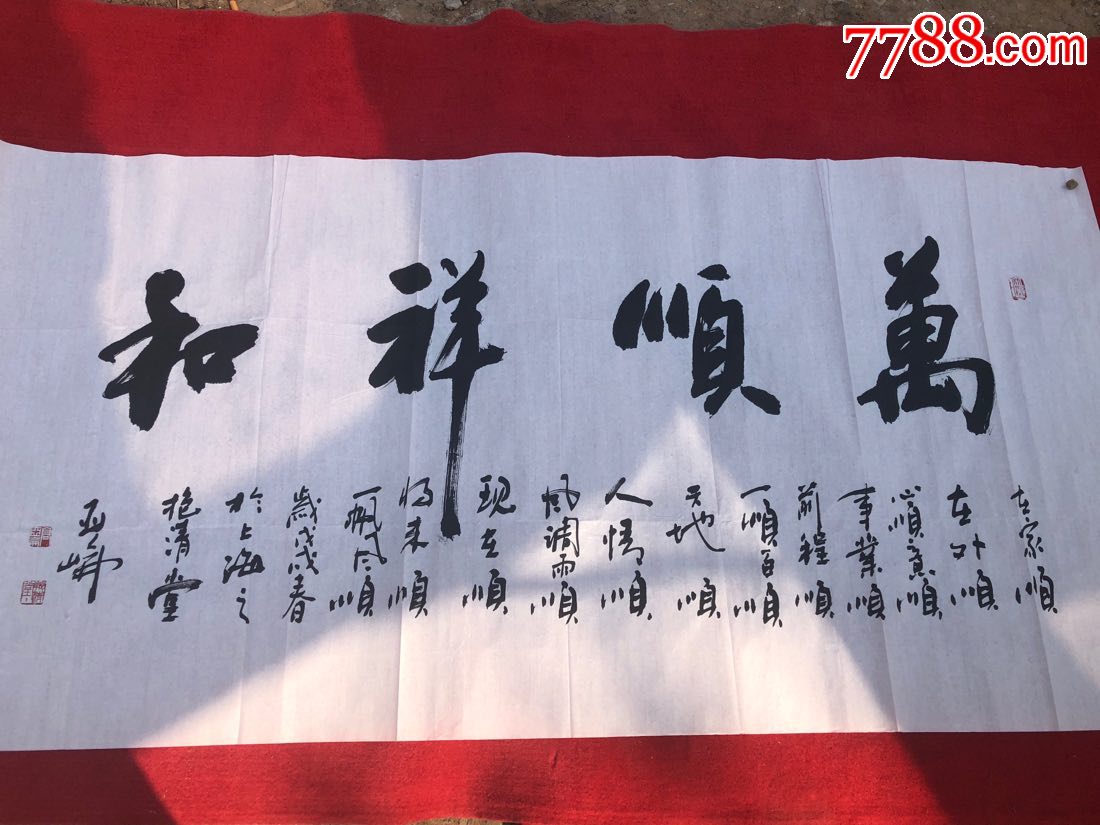 7788.com
萬順祥和
在家順
在外順
心順意順
事業順
前程順
一順百順
天地順
人情順
風調雨順
现在順
将来順
一帆风順
歲戊戌春
於上海之
抱清堂
亚峰